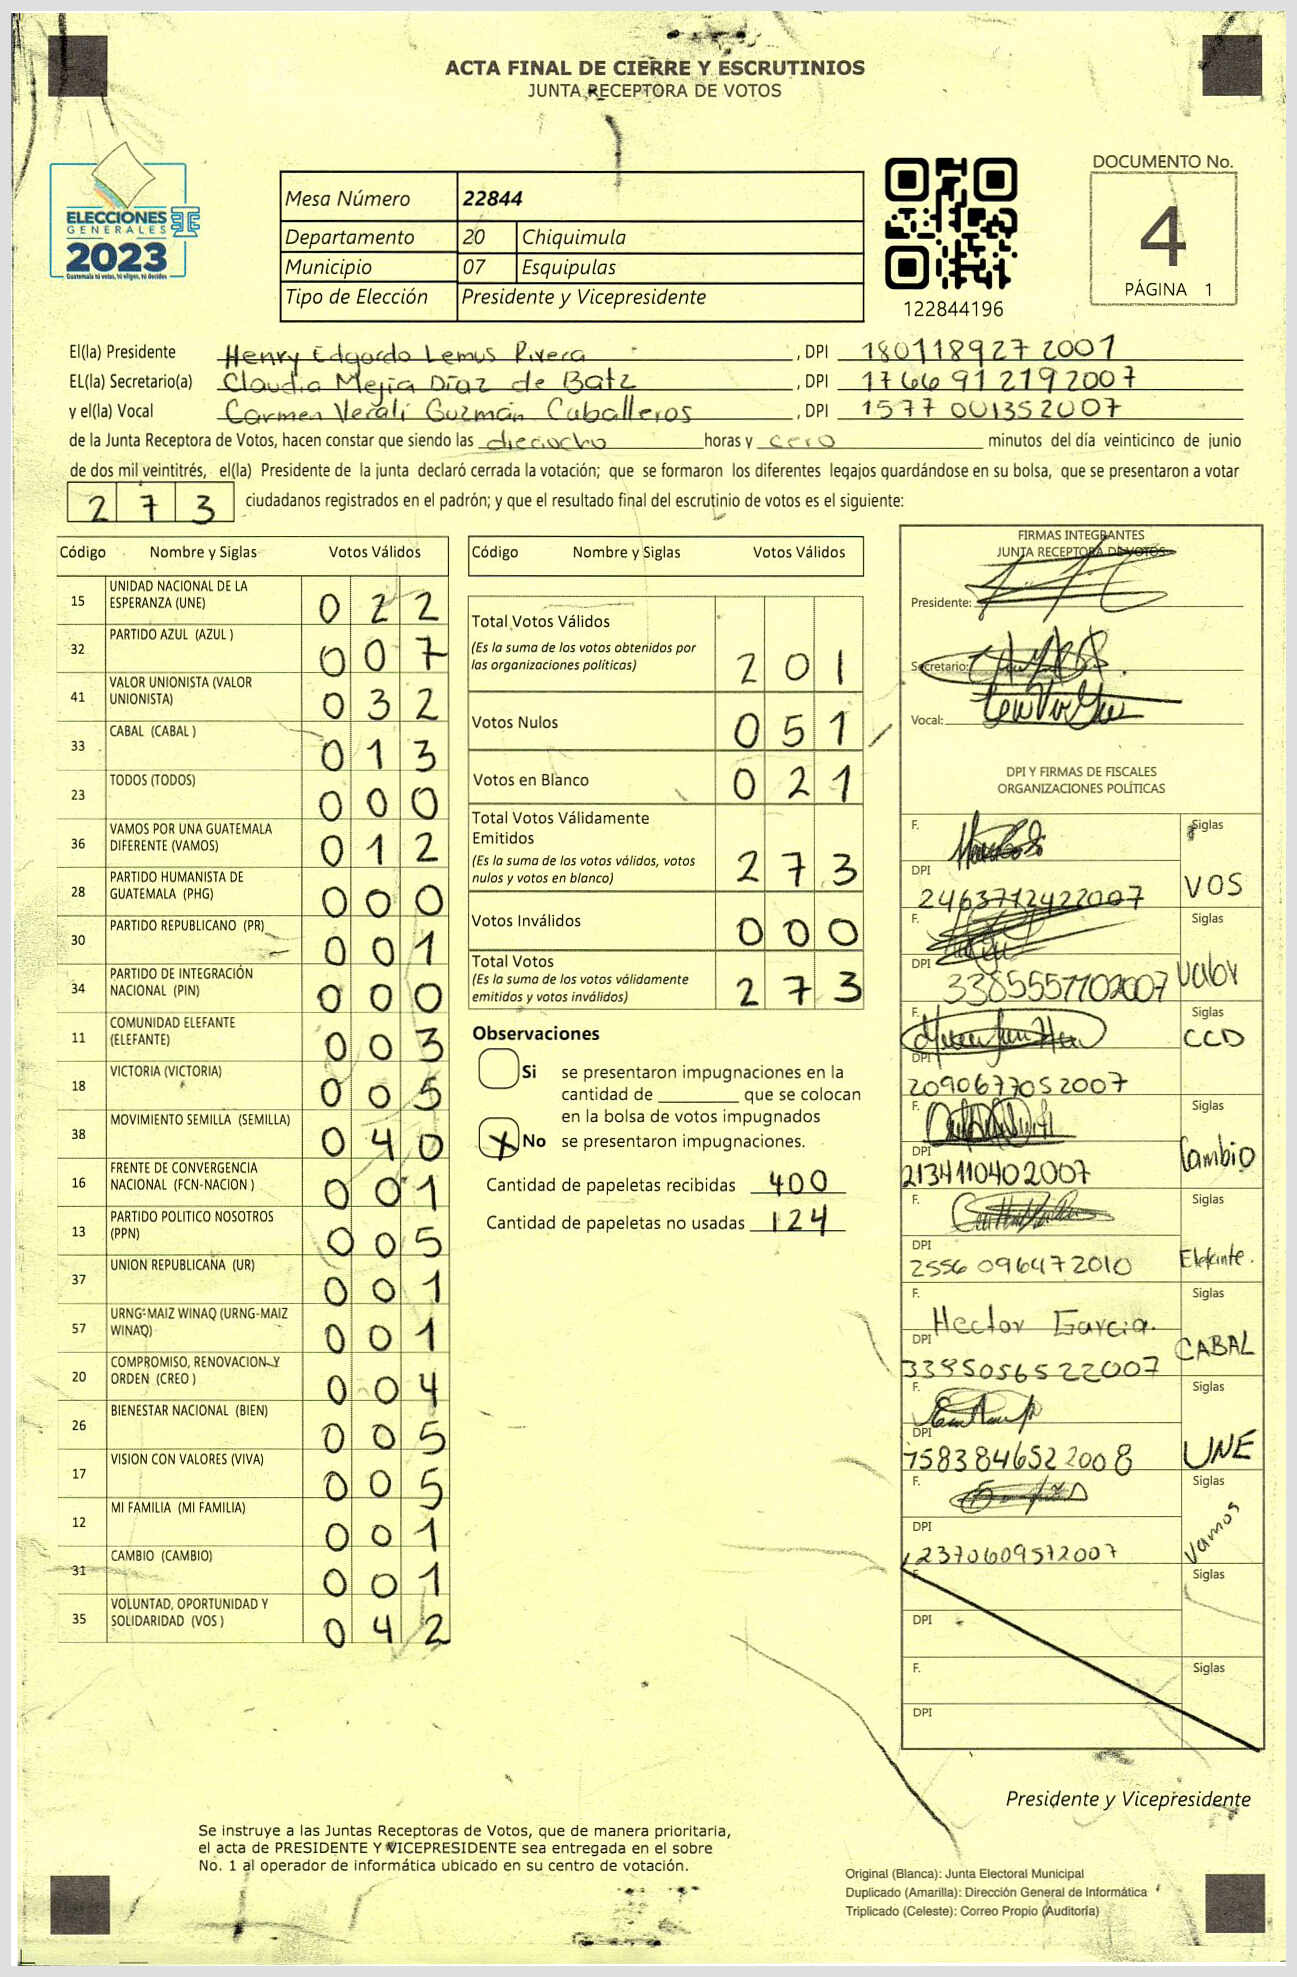 ACTA FINAL DE CIERRE Y ESCRUTINIOS
JUNTA RECEPTORA DE VOTOS
ELECCIONES
GENERALES
2023
Guatemala tú votas, tú eliges, tú decides
Mesa Número 22844
Departamento 20 Chiquimula
Municipio 07 Esquipulas
Tipo de Elección Presidente y Vicepresidente
122844196
DOCUMENTO No.
4
PÁGINA 1
El(la) Presidente Henry Edgardo Lemus Rivera , DPI 180118927 2001
EL(la) Secretario(a) Claudia Mejia Díaz de Batz , DPI 1766 91 219 2007
y el(la) Vocal Carmen Verali Guzmán Caballeros , DPI 1577 001352007
de la Junta Receptora de Votos, hacen constar que siendo las dieciocho horas y cero minutos del día veinticinco de junio
de dos mil veintitrés, el(la) Presidente de la junta declaró cerrada la votación; que se formaron los diferentes legajos guardándose en su bolsa, que se presentaron a votar
2 7 3 ciudadanos registrados en el padrón; y que el resultado final del escrutinio de votos es el siguiente:
Código Nombre y Siglas Votos Válidos
15 UNIDAD NACIONAL DE LA ESPERANZA (UNE) 0 2 2
32 PARTIDO AZUL (AZUL ) 0 0 7
41 VALOR UNIONISTA (VALOR UNIONISTA) 0 3 2
33 CABAL (CABAL ) 0 1 3
23 TODOS (TODOS) 0 0 0
36 VAMOS POR UNA GUATEMALA DIFERENTE (VAMOS) 0 1 2
28 PARTIDO HUMANISTA DE GUATEMALA (PHG) 0 0 0
30 PARTIDO REPUBLICANO (PR) 0 0 1
34 PARTIDO DE INTEGRACIÓN NACIONAL (PIN) 0 0 0
11 COMUNIDAD ELEFANTE (ELEFANTE) 0 0 3
18 VICTORIA (VICTORIA) 0 0 5
38 MOVIMIENTO SEMILLA (SEMILLA) 0 4 0
16 FRENTE DE CONVERGENCIA NACIONAL (FCN-NACION ) 0 0 1
13 PARTIDO POLITICO NOSOTROS (PPN) 0 0 5
37 UNION REPUBLICANA (UR) 0 0 1
57 URNG-MAIZ WINAQ (URNG-MAIZ WINAQ) 0 0 1
20 COMPROMISO, RENOVACION Y ORDEN (CREO ) 0 0 4
26 BIENESTAR NACIONAL (BIEN) 0 0 5
17 VISION CON VALORES (VIVA) 0 0 5
12 MI FAMILIA (MI FAMILIA) 0 0 1
31 CAMBIO (CAMBIO) 0 0 1
35 VOLUNTAD, OPORTUNIDAD Y SOLIDARIDAD (VOS ) 0 4 2
Código Nombre y Siglas Votos Válidos
Total Votos Válidos
(Es la suma de los votos obtenidos por
las organizaciones políticas) 2 0 1
Votos Nulos 0 5 1
Votos en Blanco 0 2 1
Total Votos Válidamente
Emitidos
(Es la suma de los votos válidos, votos
nulos y votos en blanco) 2 7 3
Votos Inválidos 0 0 0
Total Votos
(Es la suma de los votos válidamente
emitidos y votos inválidos) 2 7 3
Observaciones
Si se presentaron impugnaciones en la
cantidad de ________ que se colocan
en la bolsa de votos impugnados
X No se presentaron impugnaciones.
Cantidad de papeletas recibidas 400
Cantidad de papeletas no usadas 124
FIRMAS INTEGRANTES
JUNTA RECEPTORA DE VOTOS
Presidente:
Secretario:
Vocal:
DPI Y FIRMAS DE FISCALES
ORGANIZACIONES POLÍTICAS
F. Siglas
DPI VOS
2463712422007
F. Siglas
DPI Valor
3385557102007
F. Siglas
DPI CCD
2090677052007
F. Siglas
DPI Cambio
2134110402007
F. Siglas
DPI Elefante.
2556 09647 2010
F. Hector Garcia. Siglas
DPI CABAL
3385056522007
F. Siglas
DPI UNE
1583846522008
F. Siglas
DPI Vamos
2370609572007
F. Siglas
DPI
F. Siglas
DPI
Presidente y Vicepresidente
Se instruye a las Juntas Receptoras de Votos, que de manera prioritaria,
el acta de PRESIDENTE Y VICEPRESIDENTE sea entregada en el sobre
No. 1 al operador de informática ubicado en su centro de votación.
Original (Blanca): Junta Electoral Municipal
Duplicado (Amarilla): Dirección General de Informática
Triplicado (Celeste): Correo Propio (Auditoría)